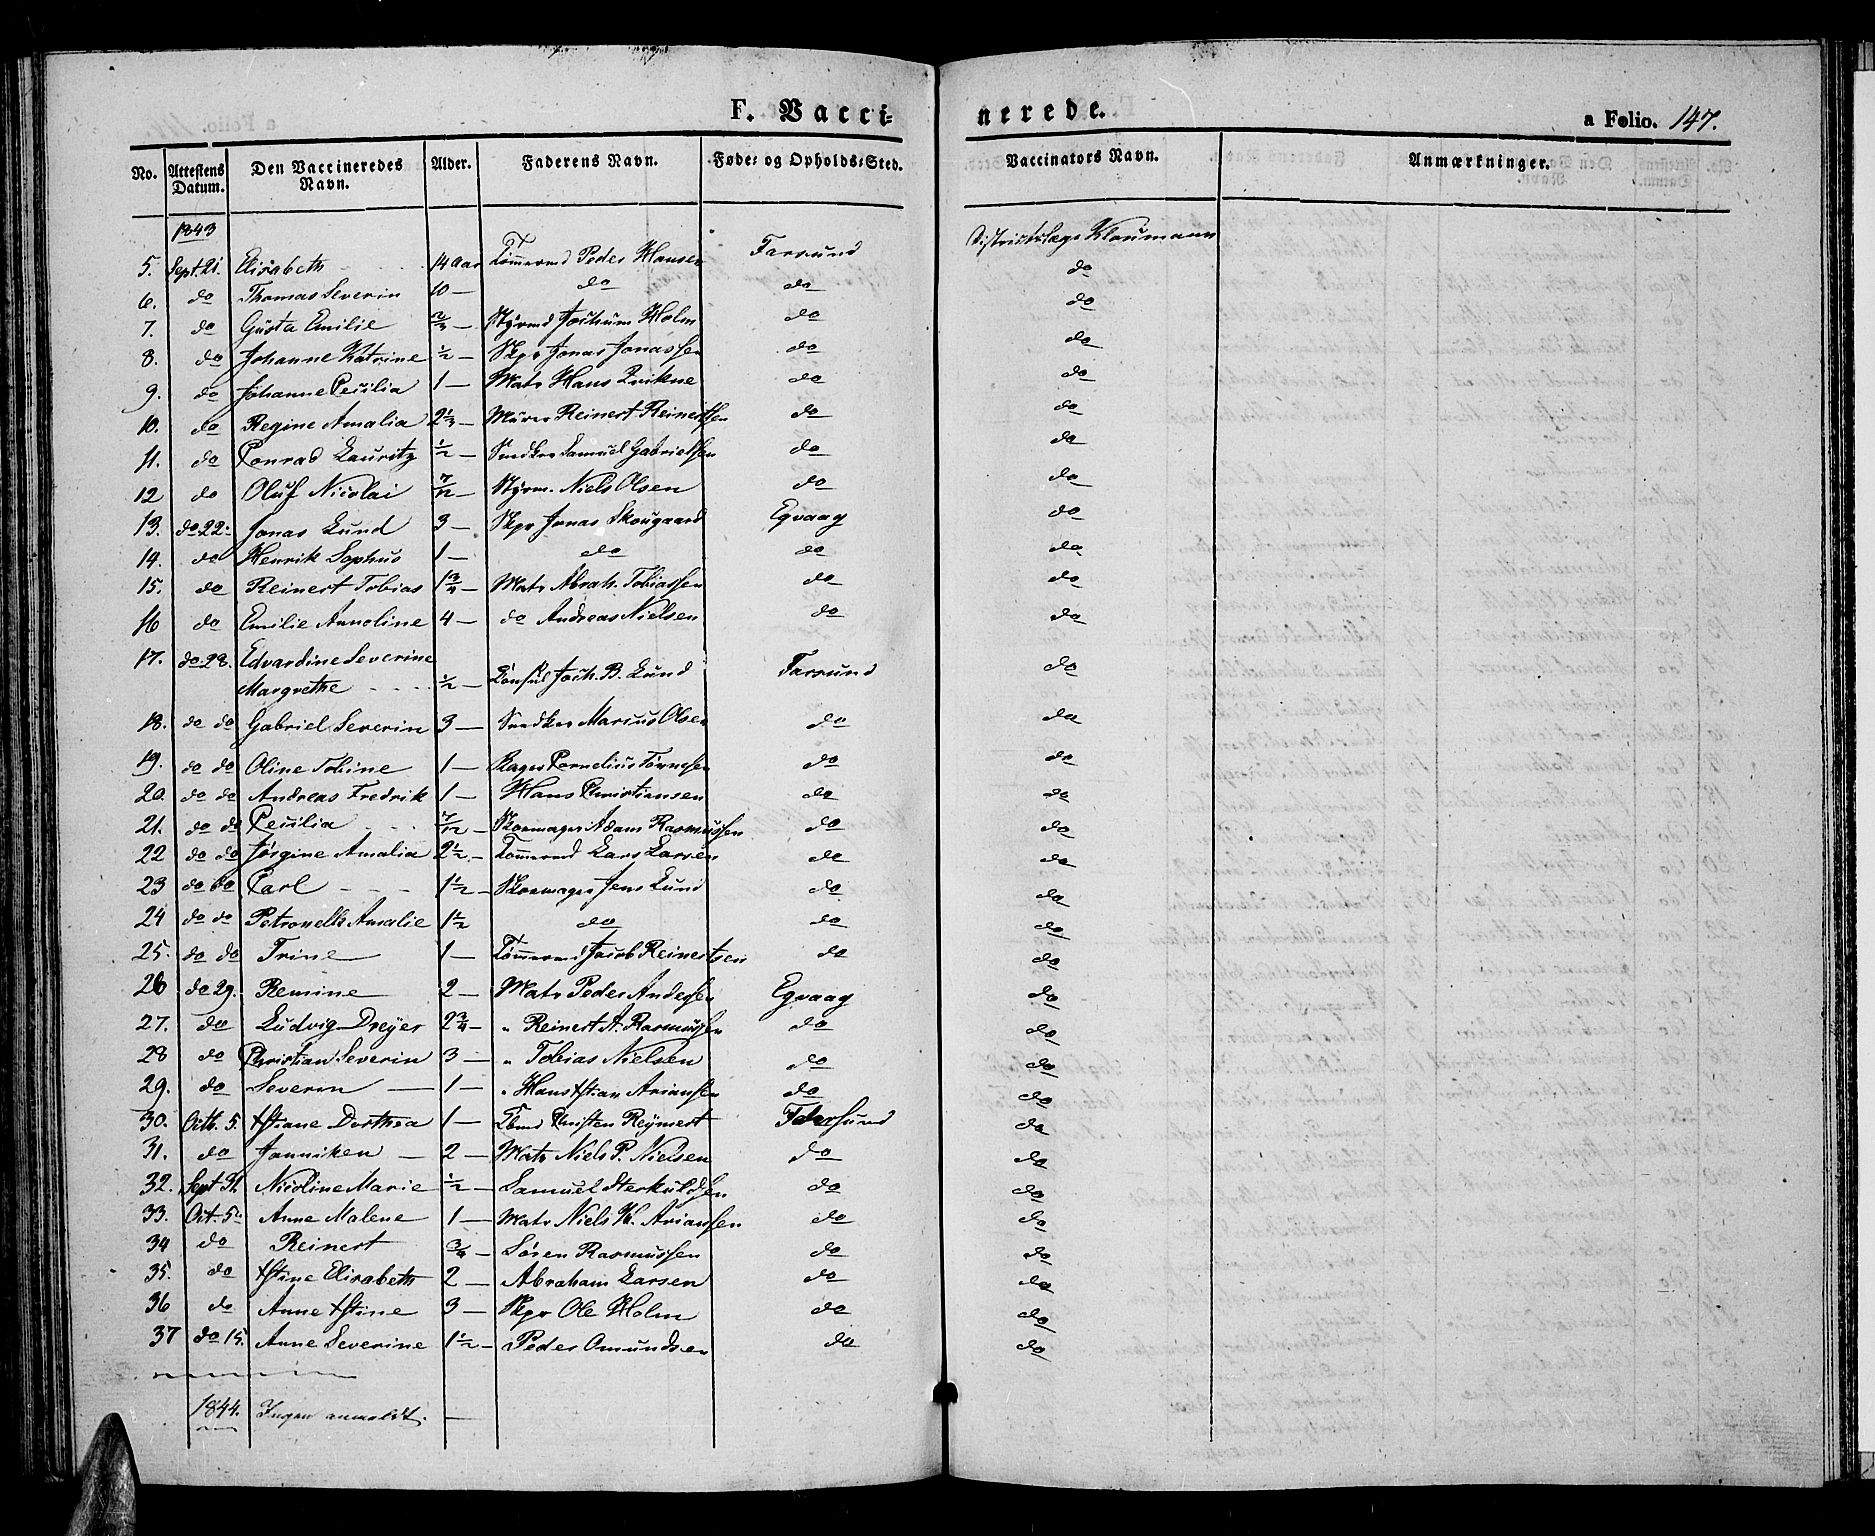 F. Vacci-
nerede.
a Folio. 147.
No. Attestens Datum. Den Vaccineredes Navn. Alder. Faderens Navn. Føde- og Opholds-Sted. Vaccinators Navn. Anmærkninger.
1843
5. Sept. 21. Elisabeth 14 Aar Tømmermd Peder Hansen Farsund Distriktslæge Kloumann
6. do Thomas Severin 10 — do do do
7. do Gusta Emilie 2/3 — Styrmd Jochum Holm do do
8. do Johanne Katrine 1/2 — Skpr Jonas Jonassen do do
9. do Johanne Cecilia 1 — Matr Hans Qvikne do do
10. do Regine Amalia 2 1/3 — Murer Reinert Reinertsen do do
11. do Conrad Lauritz 1/2 — Snedker Samuel Gabrielsen do do
12 do Oluf Nicolai 7/12 — Styrm. Niels Olsen do do
13. do 22. Jonas Lund 3 — Skpr Jonas Skougaard Egvaag do
14. do Henrik Sophus 1 — do do do
15. do Reinert Tobias 1 3/4 — Matr Abrah. Tobiassen do do
16 do Emilie Annoline 4 — do Andreas Nielsen do do
17. do 28. Edvardine Severine
Margrethe 1/2 — Konsul Joch. B. Lund Farsund do
18. do do Gabriel Severin 3 — Snedker Marius Olsen do do
19. do do Oline Tobine 1 — Bager Cornelius Tønnesen do do
20. do do Andreas Fredrik 1 — Hans Christiansen do do
21. do do Cecilia 7/12 — Skomager Adam Rasmussen do do
22 do do Jørgine Amalia 2 1/2 — Tømmermd Lars Larsen do do
23 do do Carl 1 1/2 — Skomager Jens Lund do do
24 do do Petronelle Amalie 1 1/2 do do do
25. do do Trine 1 — Tømmermd Jacob Reinertsen do do
26 do 29. Remine 2 — Matr Peder Andersen Egvaag do
27. do Ludvig Dreyer 2 3/4 — " Reinert A. Rasmussen do do
28 do Christian Severin 3 — " Tobias Nielsen do do
29. do Severin — 1 — " Hans Xstian Ariansen do do
30. Octb. 5. Xstiane Dorthea 1 — Tbmd Christen Reymert Farsund do
31. do Janniken — 2 — Matr Niels P. Nielsen do do
32. Sept 31. Nicoline Marie 1/2 — Samuel Sterkuldsen do do
33. Oct. 5. Anne Malene 1 — Matr Niels K. Ariansen do do
34 do Reinert 3/4 — Sören Rasmussen do do
35. do Xstine Elisabeth 2 — Abraham Larsen do do
36 do Anne Xstine 3 — Skpr Ole Holm do do
37 do 15. Anne Severine 1 1/2 — Peder Omundsen do do
1844. Ingen anmeldt. —